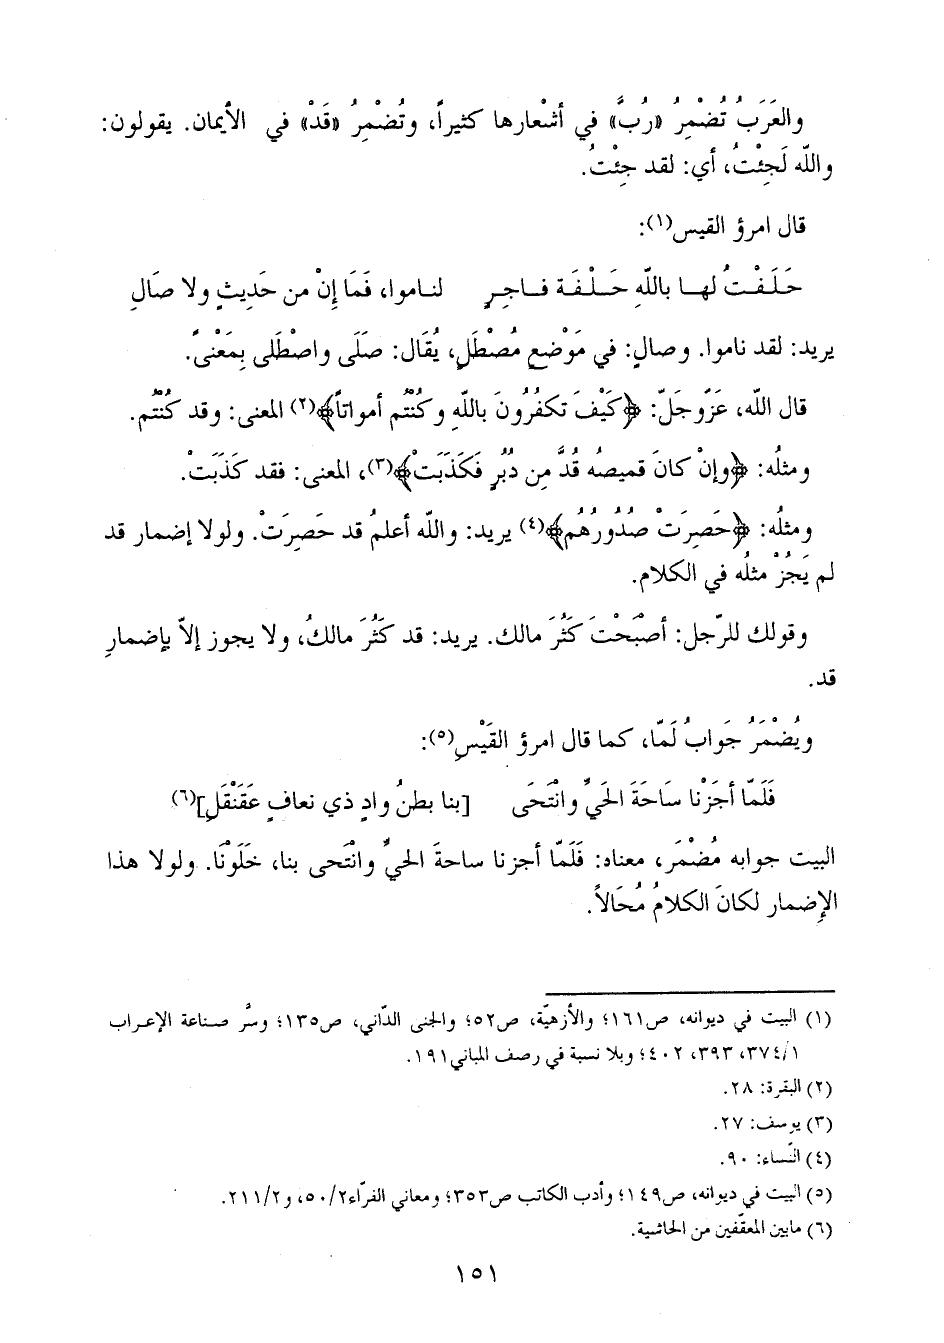 والعَرَبُ تُضْمِرُ «رُبَّ» في أشْعارها كثيراً، وتُضْمِرُ «قَدْ» في الأيمان. يقولون:
واللّه لَجِئْتُ، أي: لقد جِئْتُ.
قال امرؤ القيس(١):
حَلَفْتُ لها باللّهِ حَلْفَة فاجِرٍ لناموا، فَمَا إنْ من حَدِيثٍ ولا صَالِ
يريد: لقد ناموا. وصالٍ: في مَوْضع مُصْطَلٍ، يُقَال: صَلَى واصْطَلى بِمَعْنىً.
قال اللّه، عَزّوجَلّ: ﴿كَيْفَ تكفُرُونَ باللّهِ وكُنْتُم أمواتاً﴾(٢) المعنى: وقد كُنْتُم.
ومثلُه: ﴿وإنْ كانَ قميصُه قُدَّ مِن دُبُرٍ فَكَذَبَتْ﴾(٣)، المعنى: فقد كَذَبَتْ.
ومثلُه: ﴿حَصِرَتْ صُدُورُهُم﴾(٤) يريد: واللّه أعلمُ قد حَصِرَتْ. ولولا إضمار قد
لم يَجُزْ مثلُه في الكلام.
وقولك للرّجل: أصْبَحْتَ كَثُرَ مالك. يريد: قد كَثُرَ مالكُ، ولا يجوز إلاّ بإضمارِ
قد.
ويُضْمَرُ جَوابُ لَمّا، كما قال امرؤ القَيْسِ(٥):
فَلَمّا أجَزْنا سَاحَةَ الحَيِّ وانْتَحَى [بنا بطنُ وادٍ ذي نعافٍ عَقَنْقَلِ](٦)
البيت جوابه مُضْمَر، معناه: فَلَمّا أجزنا ساحةَ الحيِّ وانْتَحى بنا، خَلَوْنَا. ولولا هذا
الإِضمار لكانَ الكلامُ مُحَالاً.
(١) البيت في ديوانه، ص١٦١؛ والأزهيّة، ص٥٢؛ والجنى الدّاني، ص١٣٥؛ وسرُّ صناعة الإعراب
٣٧٤/١، ٣٩٣، ٤٠٢؛ وبلا نسبة في رصف المباني١٩١.
(٢) البقرة: ٢٨.
(٣) يوسف: ٢٧.
(٤) النّساء: ٩٠.
(٥) البيت في ديوانه، ص١٤٩؛ وأدب الكاتب ص٣٥٣؛ ومعاني الفرّاء٥٠/٢، و٢١١/٢.
(٦) مابين المعقّفين من الحاشية.
١٥١